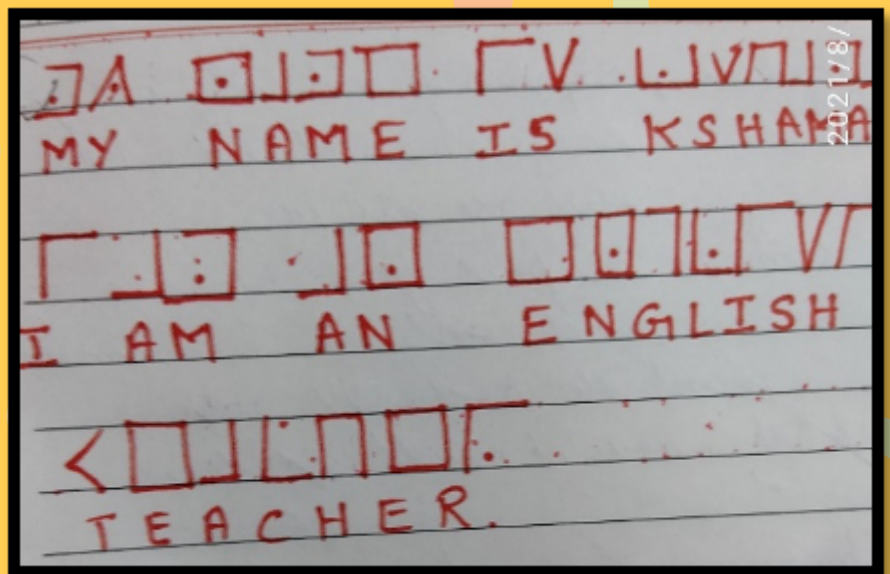 MY NAME IS KSHAMA
I AM AN ENGLISH
TEACHER.
2021/8/